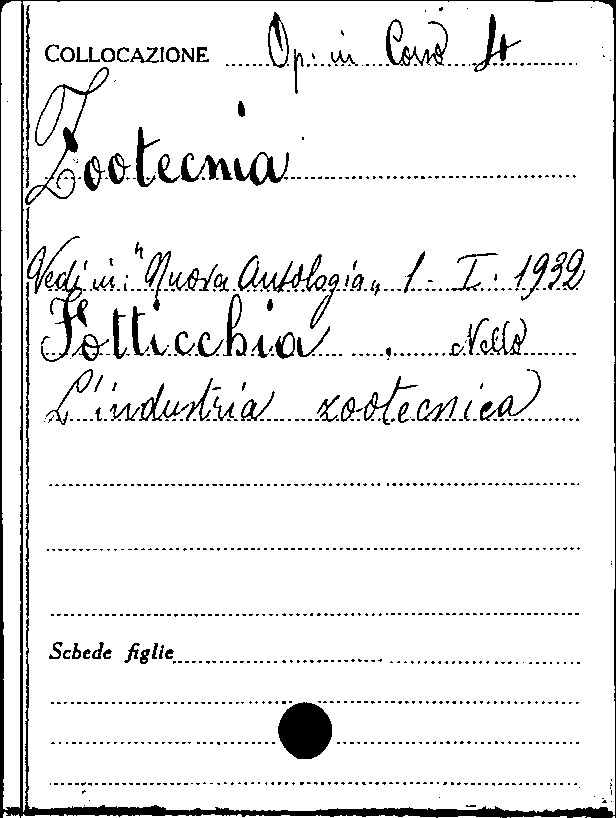 COLLOCAZIONE Op. in Corso 4
Zootecnia
Vedi in: "Nuova Antologia" 1 - I. 1932
Fotticchia . Nello
L'industria zootecnica
Schede figlie